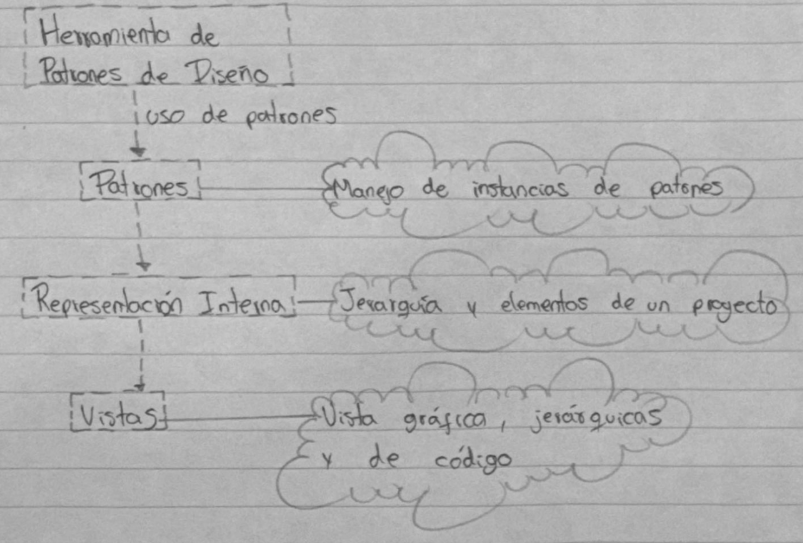 Herramienta de
Patrones de Diseño
uso de patrones
Patrones
Manejo de instancias de patones
Representación Interna
Jerarguía y elementos de un proyecto
Vistas
Vista gráfica, jerárquicas
y de código